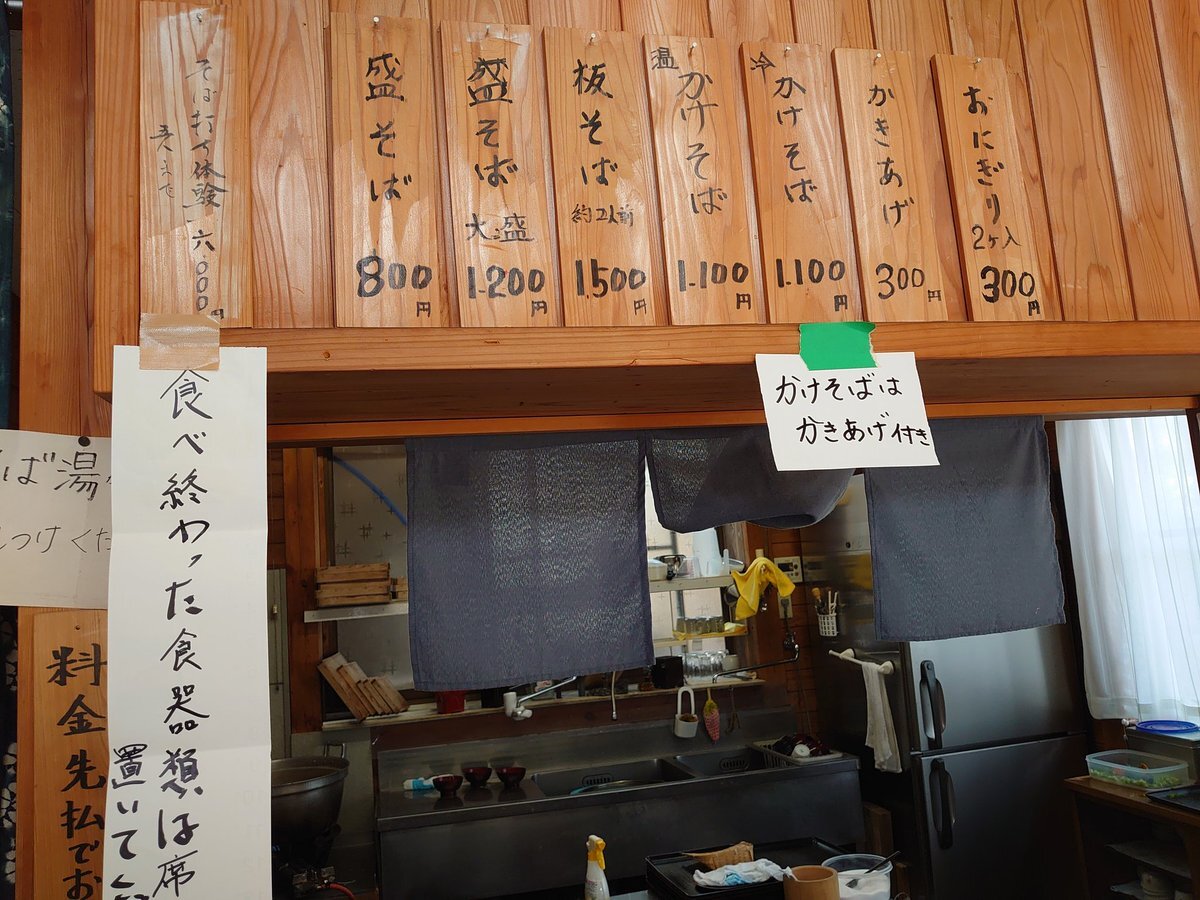 そば打ち体験 六.000円
五人まで
盛そば
800円
盛そば
大盛
1.200円
板そば
約2人前
1.500円
温
かけそば
1.100円
冷
かけそば
1.100円
かきあげ
300円
おにぎり
2ケ入
300円
かけそばは
かきあげ付き
そば湯
つけくだ
食べ終わった食器類は席
置いてく
料金先払でお